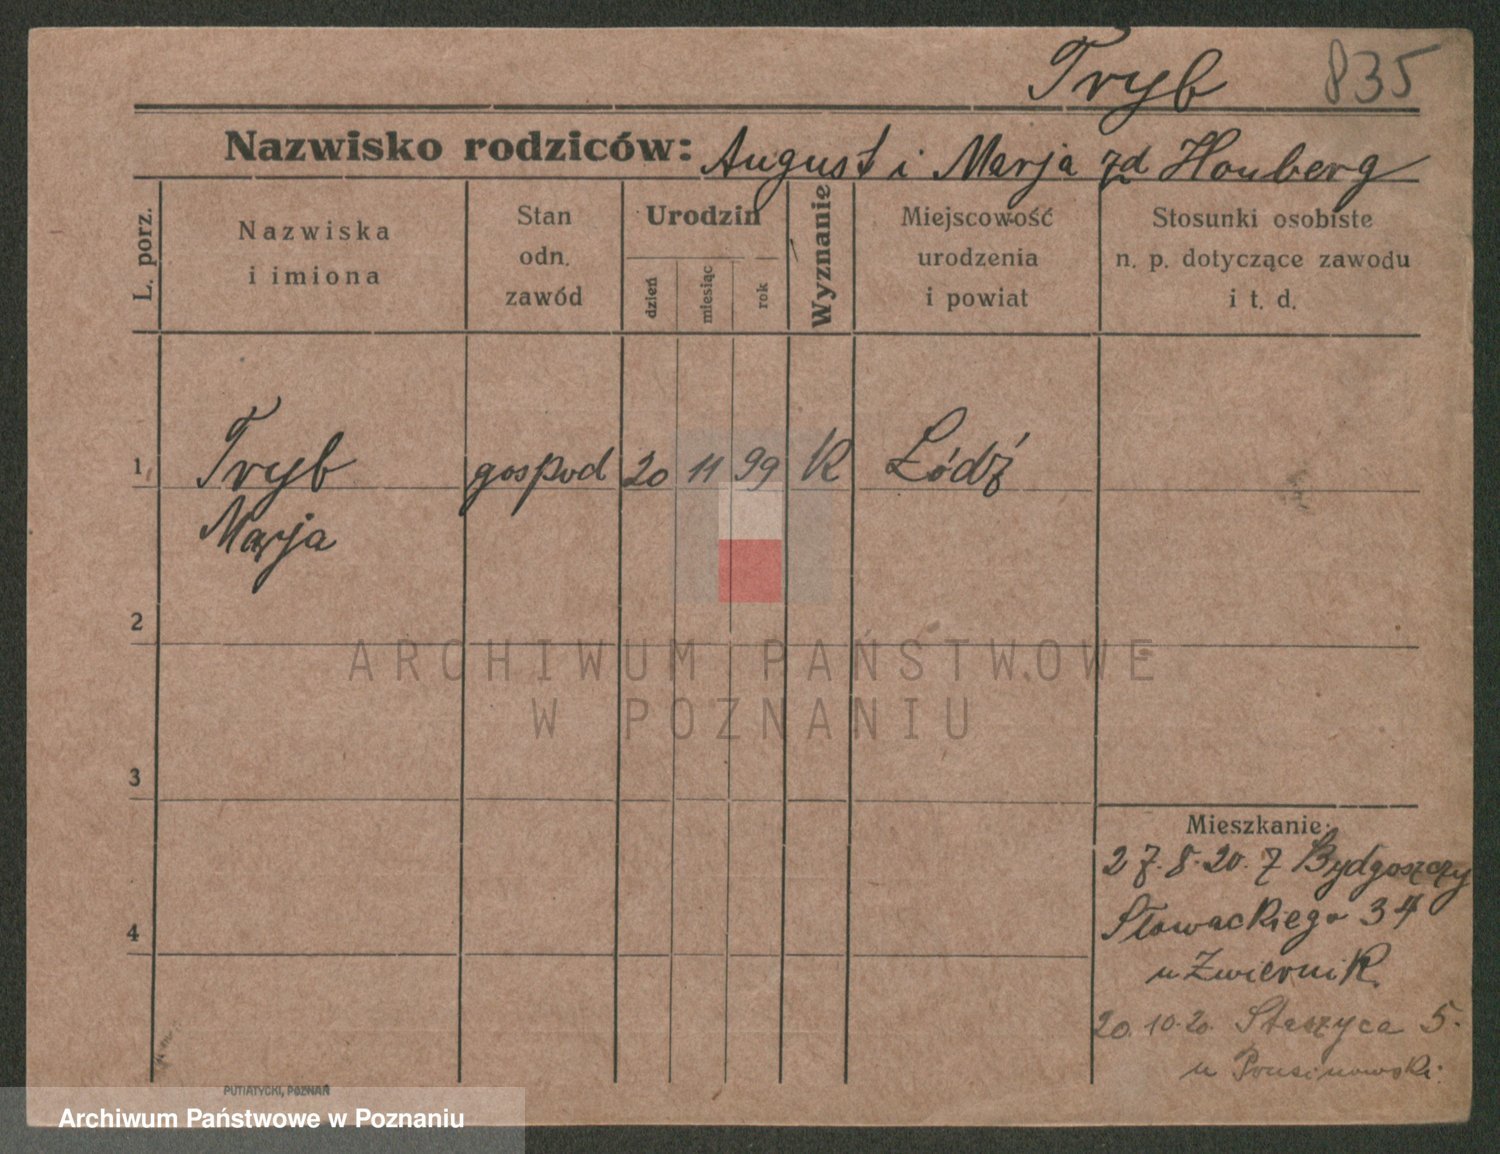 Tryb 835
Nazwisko rodziców: August i Marja zd Honberg
L. porz.
Nazwiska
i imiona
Stan
odn.
zawód
Urodzin
dzień
miesiąc
rok
Wyznanie
Miejscowość
urodzenia
i powiat
Stosunki osobiste
n. p. dotyczące zawodu
i t. d.
1 Tryb gospod 20 11 99 K Łódź
Marja
2
ARCHIWUM PAŃSTWOWE
W POZNANIU
3
Mieszkanie:
27.8.20. z Bydgoszczy
4 Słowackiego 34
u Zwiernik
20.10.20. Staszyca 5.
u
PUTIATYCKI, POZNAŃ
Archiwum Państwowe w Poznaniu